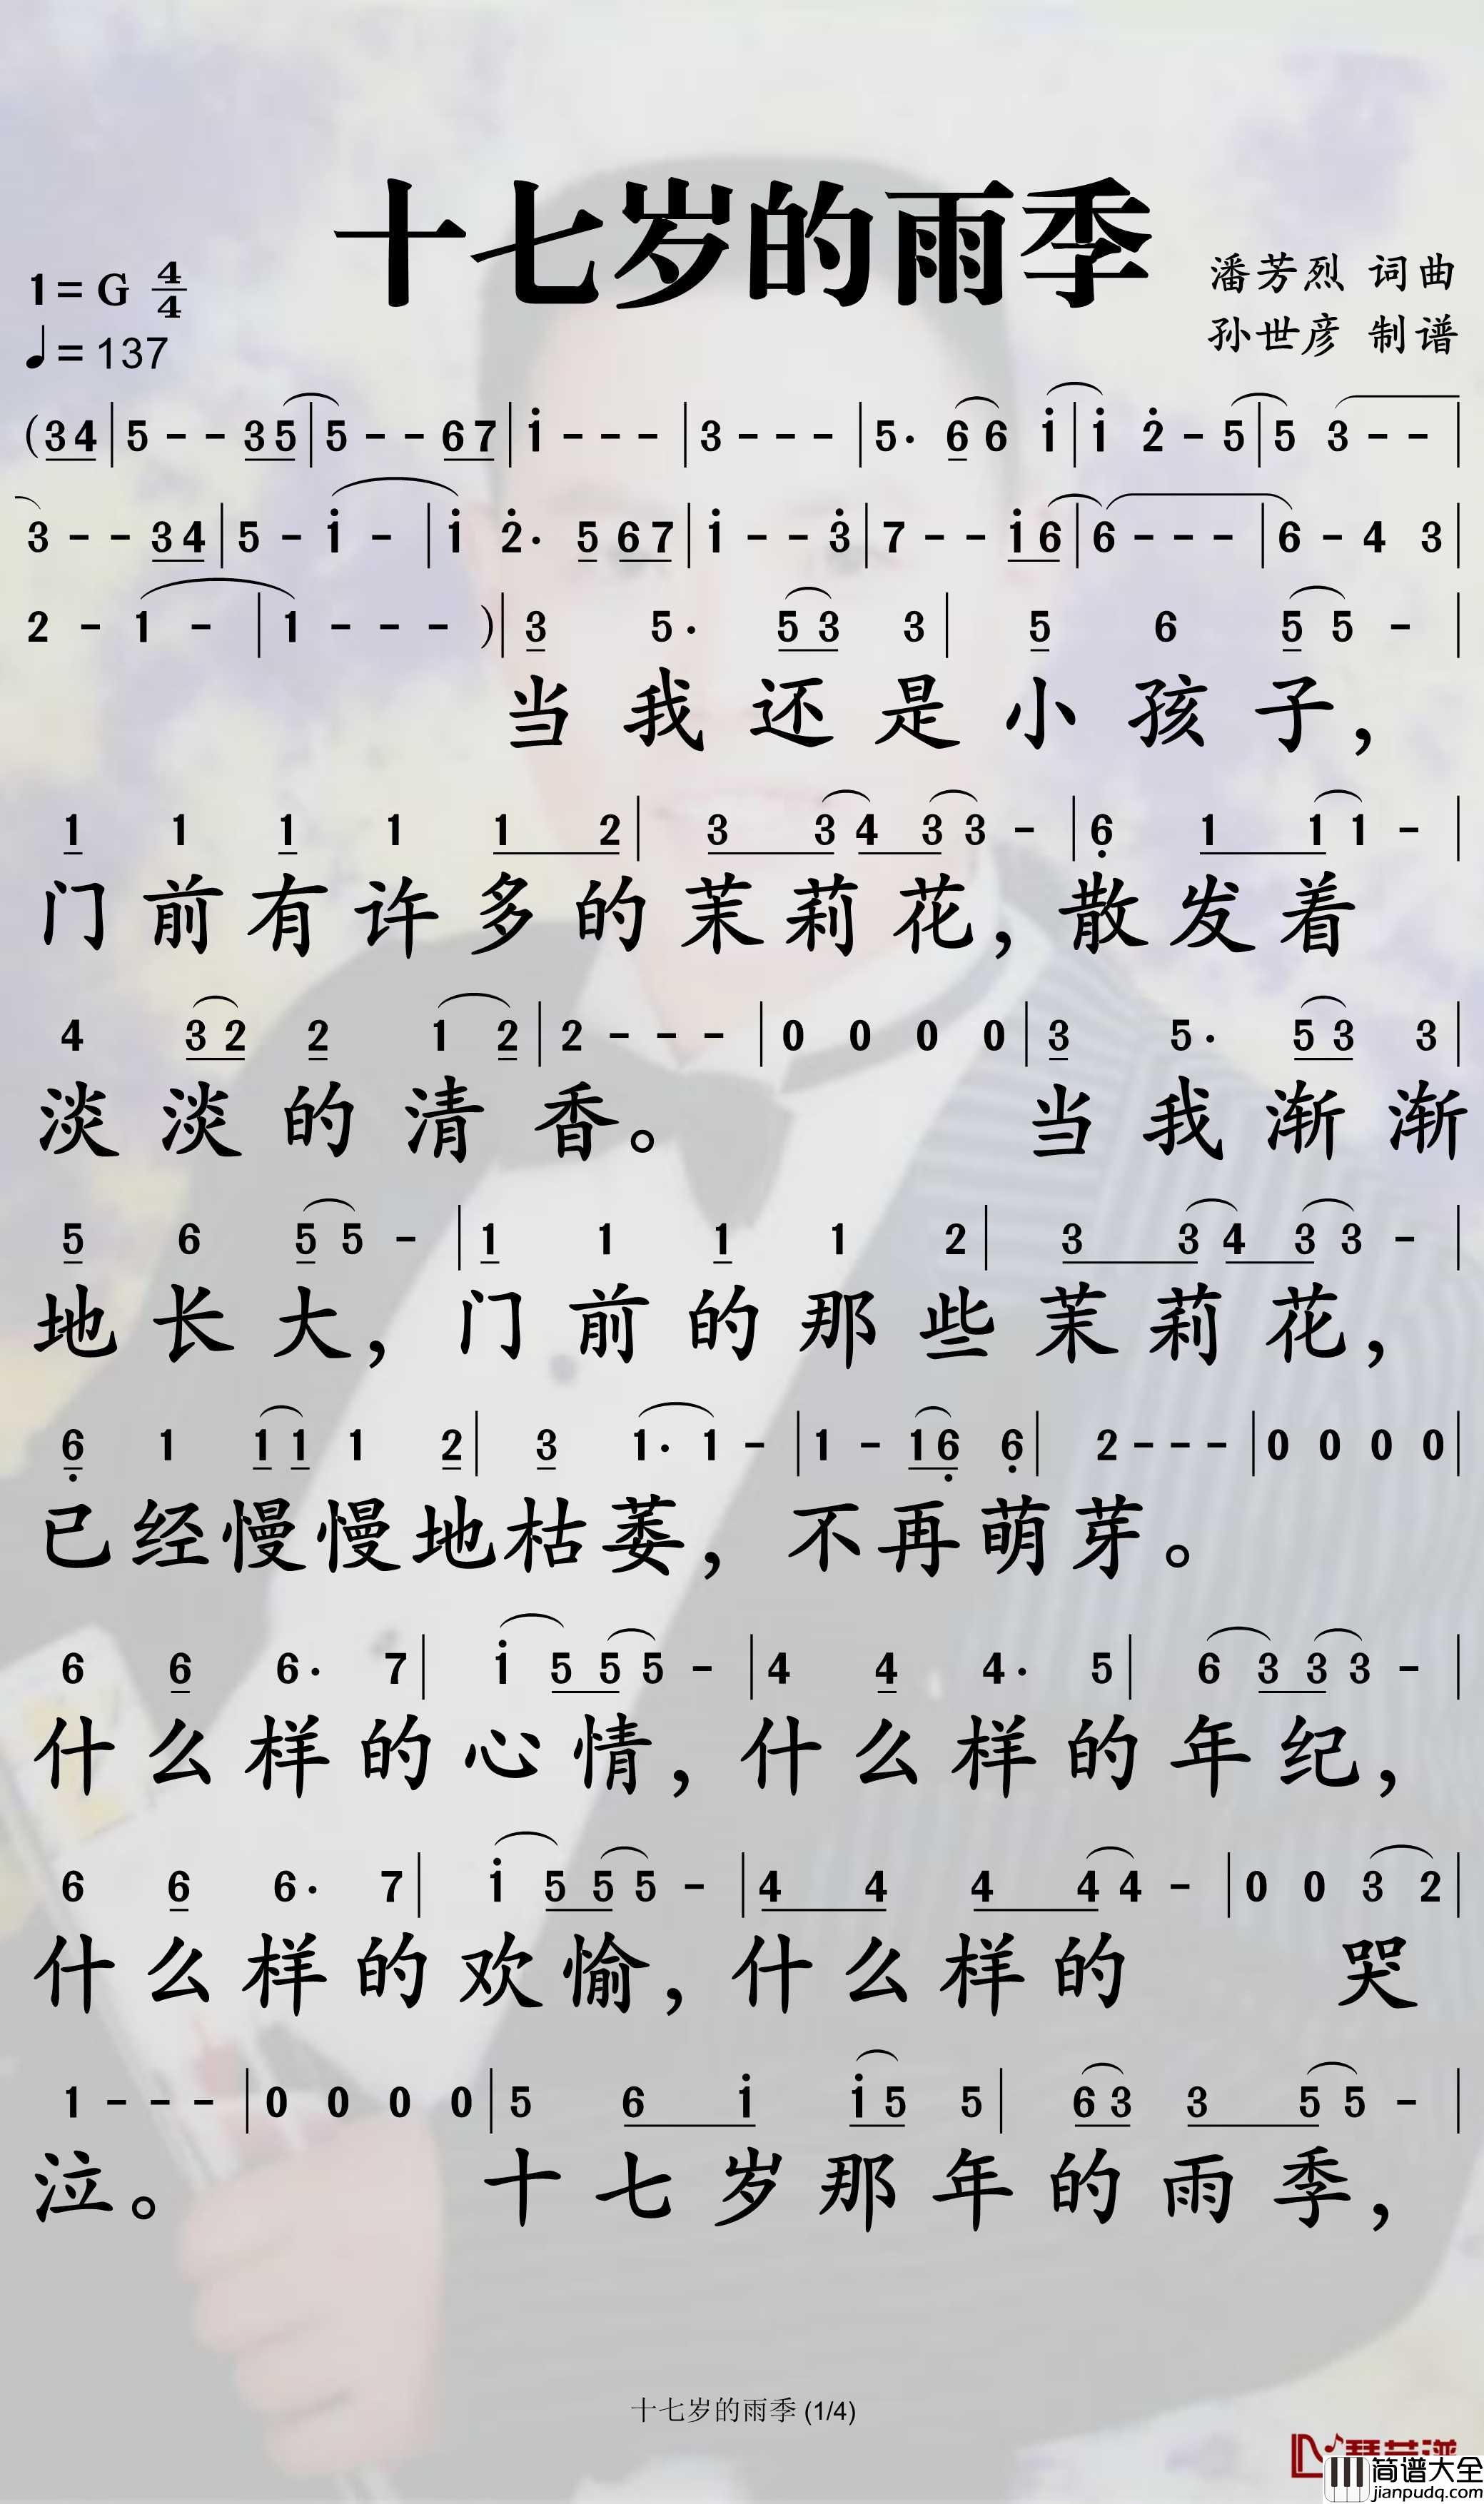 十七岁的雨季
1=G 4/4
♩=137
潘芳烈 词曲
孙世彦 制谱
(3 4 | 5 - - 3 5 | 5 - - 6 7 | i - - - | 3 - - - | 5· 6 6 i | i 2̇ - 5 | 5 3 - - |
3 - - 3 4 | 5 - i - | i 2̇· 5 6 7 | i - - 3̇ | 7 - - i 6 | 6 - - - | 6 - 4 3 |
2 - 1 - | 1 - - - ) | 3 5· 5 3 3 | 5 6 5 5 - |
当我还是小孩子，
1 1 1 1 1 2 | 3 3 4 3 3 - | 6̣ 1 1 1 - |
门前有许多的茉莉花，散发着
4 3 2 2 1 2 | 2 - - - | 0 0 0 0 | 3 5· 5 3 3 |
淡淡的清香。当我渐渐
5 6 5 5 - | 1 1 1 1 2 | 3 3 4 3 3 - |
地长大，门前的那些茉莉花，
6̣ 1 1 1 1 2 | 3 1· 1 - | 1 - 1 6̣ 6̣ | 2 - - - | 0 0 0 0 |
已经慢慢地枯萎，不再萌芽。
6 6 6· 7 | i 5 5 5 - | 4 4 4· 5 | 6 3 3 3 - |
什么样的心情，什么样的年纪，
6 6 6· 7 | i 5 5 5 - | 4 4 4 4 4 - | 0 0 3 2 |
什么样的欢愉，什么样的 哭
1 - - - | 0 0 0 0 | 5 6 i i 5 5 | 6 3 3 5 5 - |
泣。十七岁那年的雨季，
十七岁的雨季 (1/4)
简谱大全
jianpudq.com